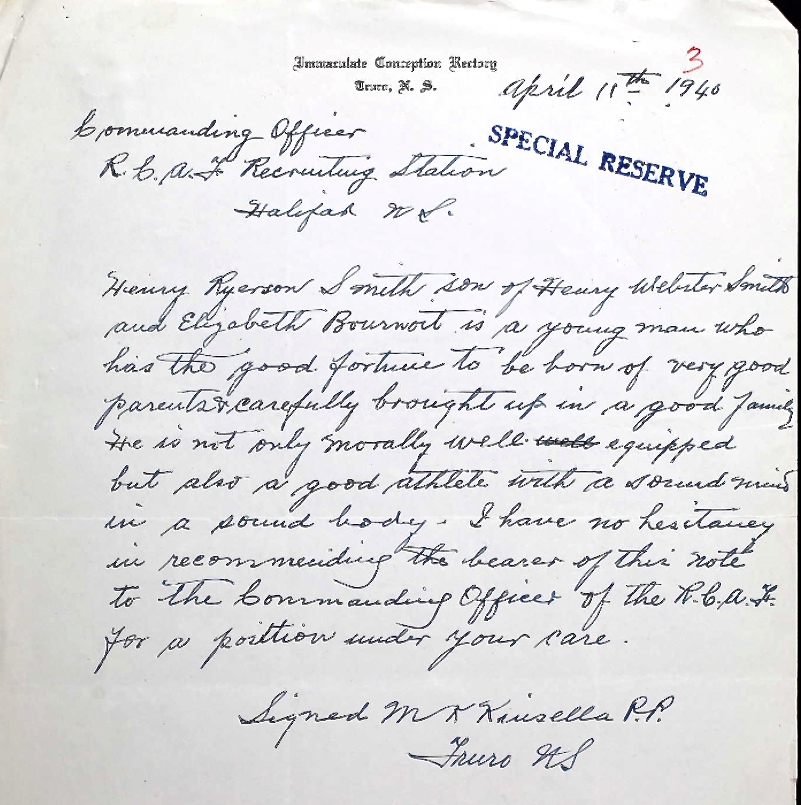 Immaculate Conception Rectory
Truro, N. S.
3
April 11th 1940
Commanding Officer
SPECIAL RESERVE
R.C.A.F Recruiting Station
Halifax N S.
Henry Ryerson Smith son of Henry Webster Smith
and Elizabeth Bournoit is a young man who
has the good fortune to be born of very good
parents & carefully brought up in a good family
He is not only morally well well equipped
but also a good athlete with a sound mind
in a sound body. I have no hesitancy
in recommending the bearer of this note
to the Commanding Officer of the R.C.A.F.
for a position under your care.
Signed M Kinsella P.P.
Truro NS